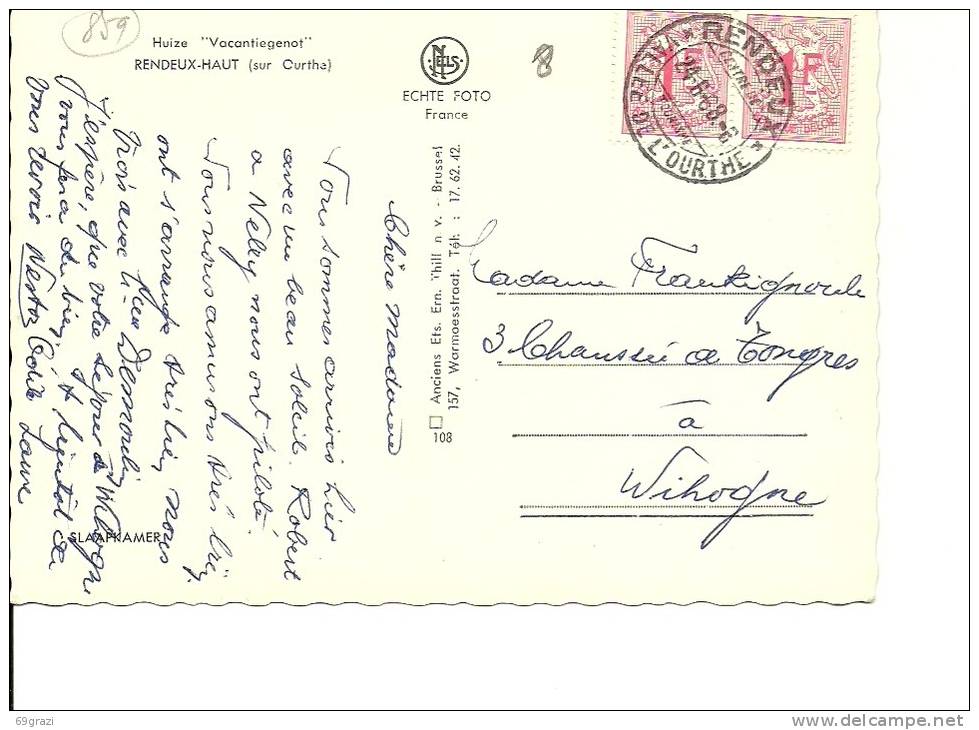 859
Huize "Vacantiegenot"
RENDEUX-HAUT (sur Ourthe)
NELS
ECHTE FOTO
France
8
RENDEUX
VALLEE DE L'OURTHE
CENTRE DE
TOURISME
Anciens Ets. Ern. Thill n v. - Brussel
157, Warmoesstraat. Tél: : 17.62.42.
108
Chère Madame
Nous sommes arrivés hier
avec un beau soleil. Robert
a Nelly nous ont piloté.
Nous nous amusons très bien
ont s'arrange très bien nous
trois avec
J'espère, que votre séjour à Wihogne
vous fera du bien, et bientôt de
vous revoir Nestor Odile Laure
SLAAPKAMER
Madame Frankignoule
3 Chaussée de Tongres
à
Wihogne
69grazi
delcampe.net